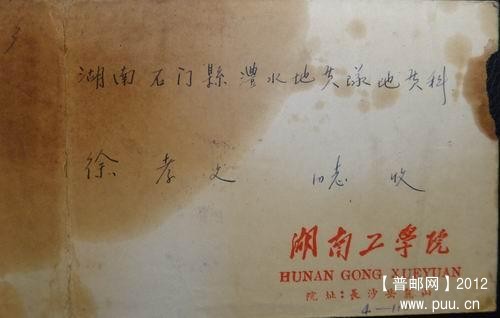 湖南石门縣澧水地质队地质科
徐孝文 同志 收
湖南工学院
HUNAN GONG XUEYUAN
院址:長沙岳麓山
【普邮网】2012
www.puu.cn